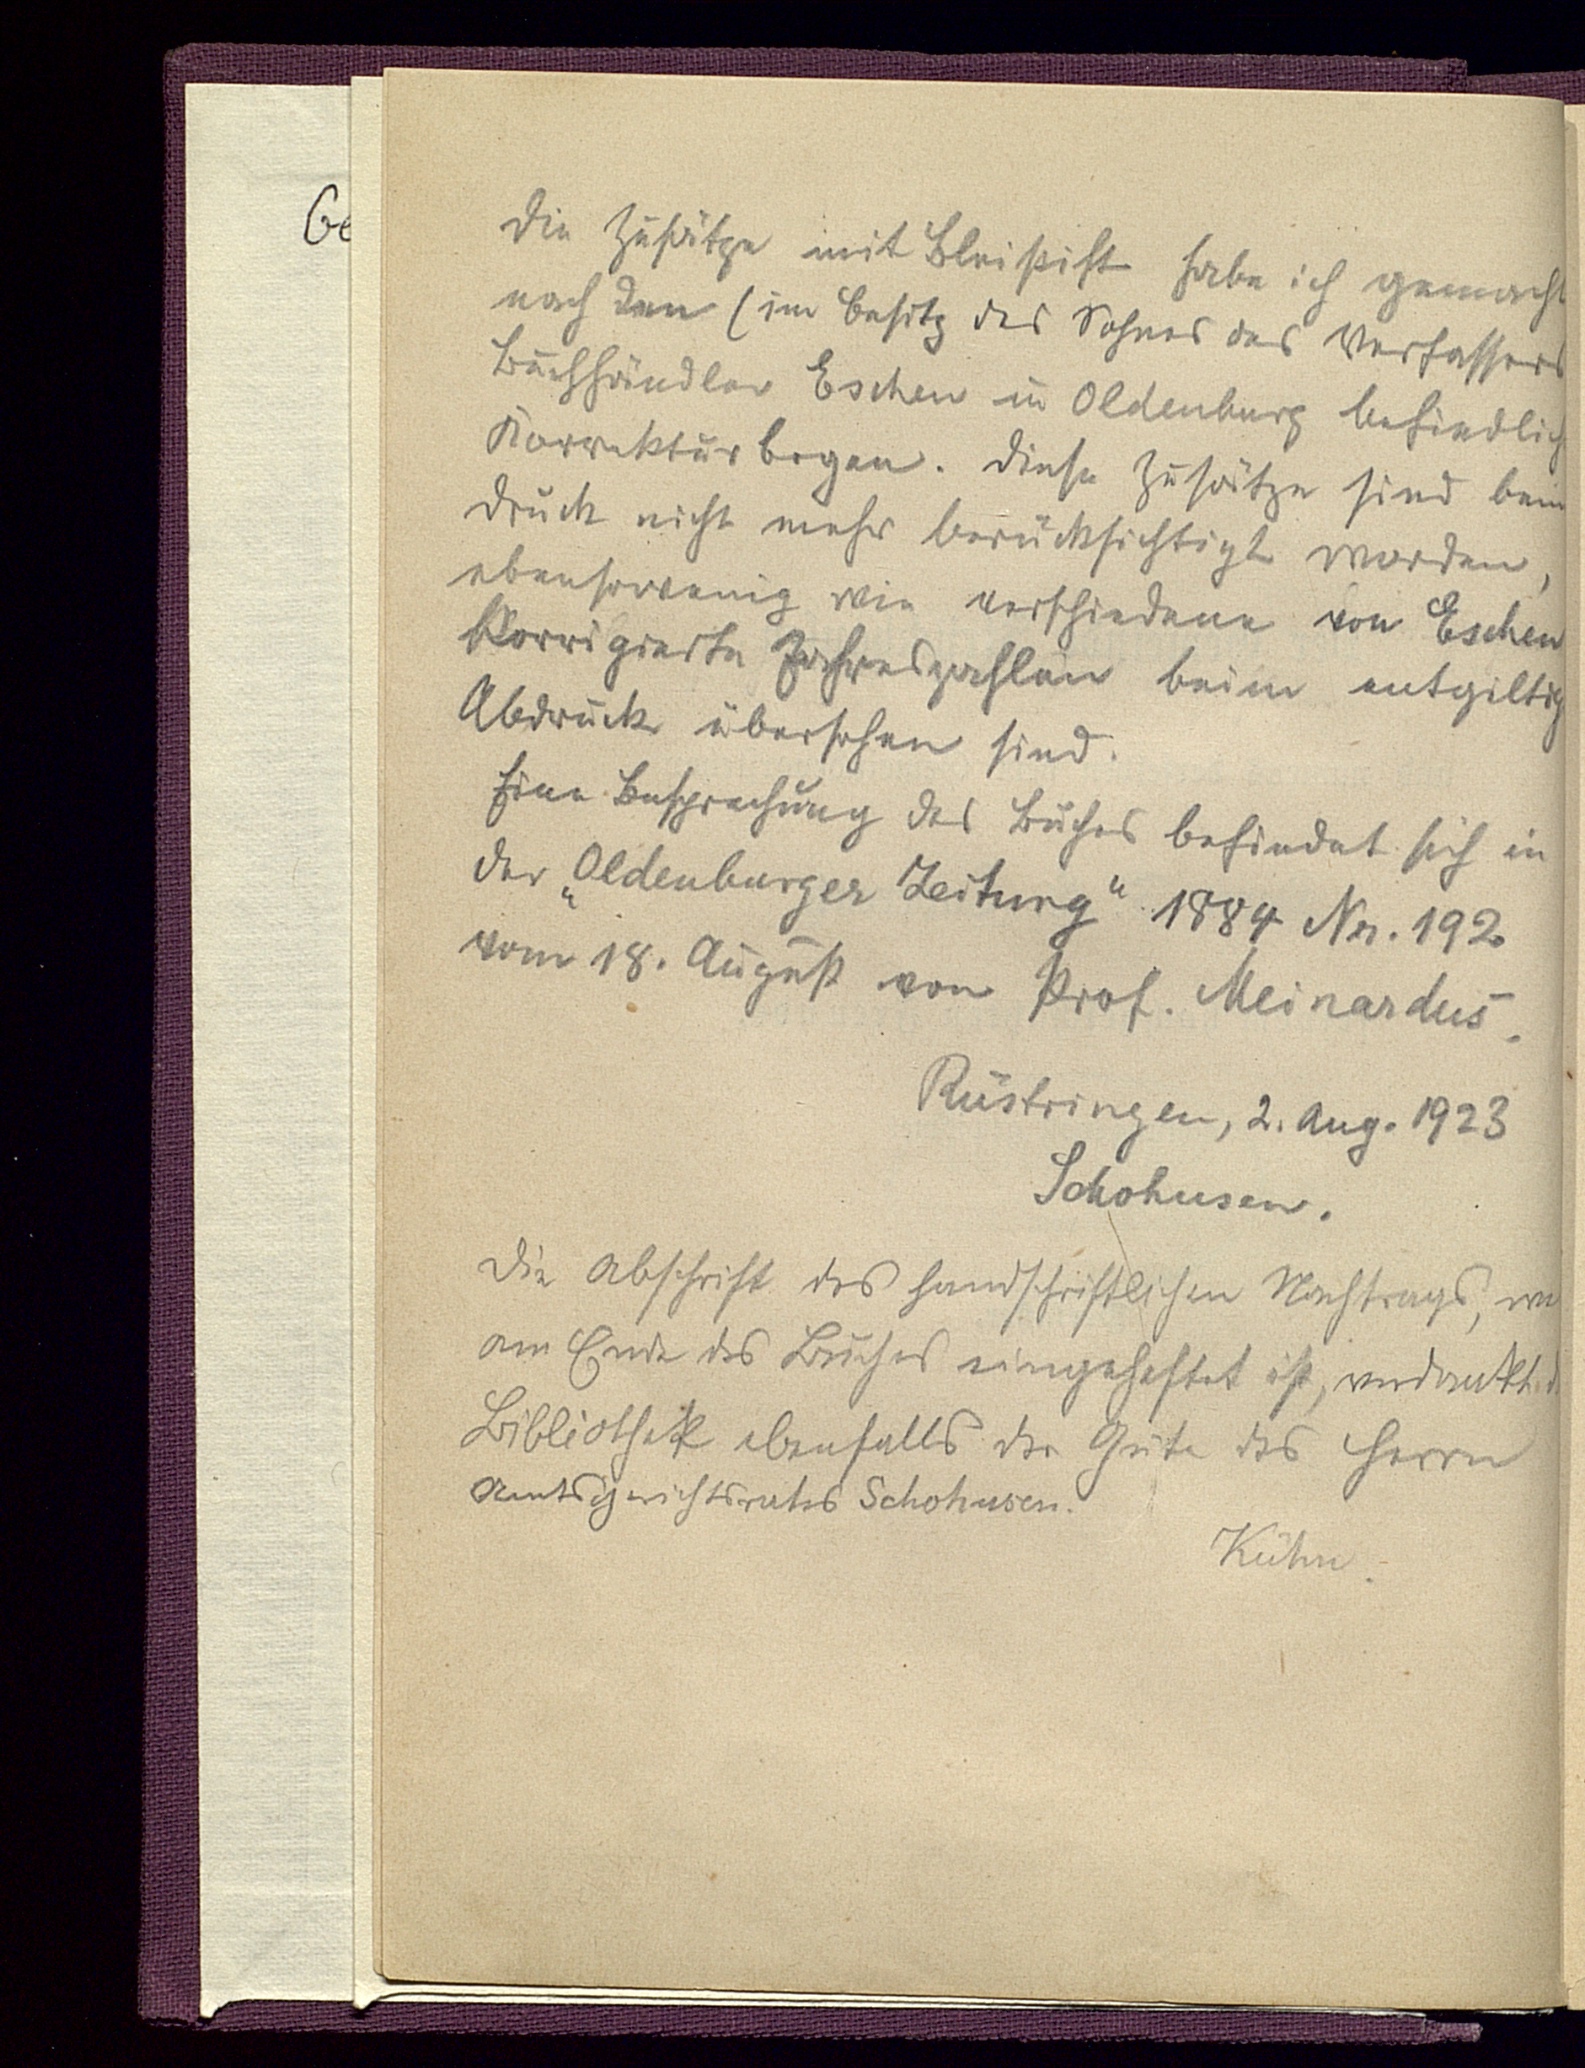 Ge
Die Zusätze mit Bleistift habe ich gemacht
nach den (im Besitz des Sohnes des Verfassers
Buchhändler Eschen in Oldenburg befindlich
Korrekturbogen. Diese Zusätze sind beim
Druck nicht mehr berücksichtigt worden,
ebensowenig wie verschiedene von Eschen
korrigierte Jahreszahlen beim entgiltig
Abdruck übersehen sind.
Eine Besprechung des Buches befindet sich in
der „Oldenburger Zeitung“ 1884 No. 192
vom 18. August von Prof. Meinardus.
Rüstringen, 2. Aug. 1923
Schohusen.
Die Abschrift des handschriftlichen Nachtrags, we
am Ende des Buches eingeheftet ist, verdankt d
Bibliothek ebenfalls der Güte des Herrn
Amtsgerichtsrates Schohusen.
Kühn.